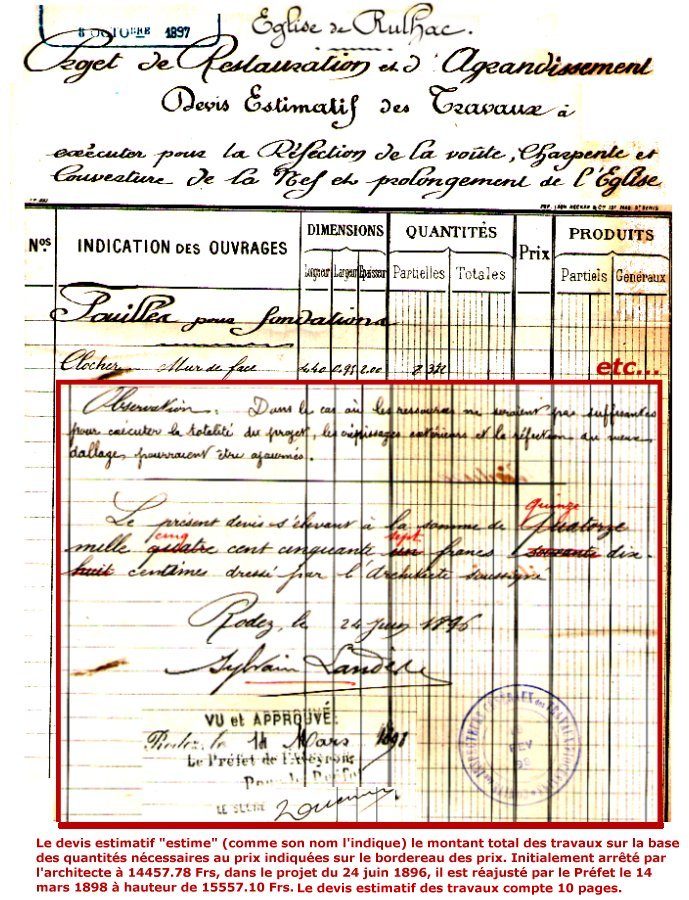 8 OCTOBRE 1897
Eglise de Rulhac.
Projet de Restauration et d'Agrandissement
Devis Estimatif des Travaux à
exécuter pour la Réfection de la voûte, Charpente et
Couverture de la Nef et prolongement de l'Eglise
Nos
INDICATION DES OUVRAGES
DIMENSIONS
QUANTITÉS
Prix
PRODUITS
Longueur Largeur Epaisseur
Partielles Totales
Partiels Généraux
Fouilles pour fondations
Clocher Mur de face 4.40 0.95 2.00
etc...
Observation. Dans le cas où les ressources ne seraient pas suffisantes
pour exécuter la totalité du projet, les crépissages extérieurs et la réfection du vieux
dallage, pourraient être ajournés.
quinze
Le présent devis s'élevant à la somme de Quatorze
cinq sept
mille quatre cent cinquante un francs soixante dix-
huit centimes dressé par l'Architecte soussigné
Rodez, le 24 Juin 1896
Sylvain
VU et APPROUVÉ:
Rodez, le 14 Mars 1898
Le Préfet de l'Aveyron
Pour le Préfet
FEV
Le devis estimatif "estime" (comme son nom l'indique) le montant total des travaux sur la base
des quantités nécessaires au prix indiquées sur le bordereau des prix. Initialement arrêté par
l'architecte à 14457.78 Frs, dans le projet du 24 juin 1896, il est réajusté par le Préfet le 14
mars 1898 à hauteur de 15557.10 Frs. Le devis estimatif des travaux compte 10 pages.